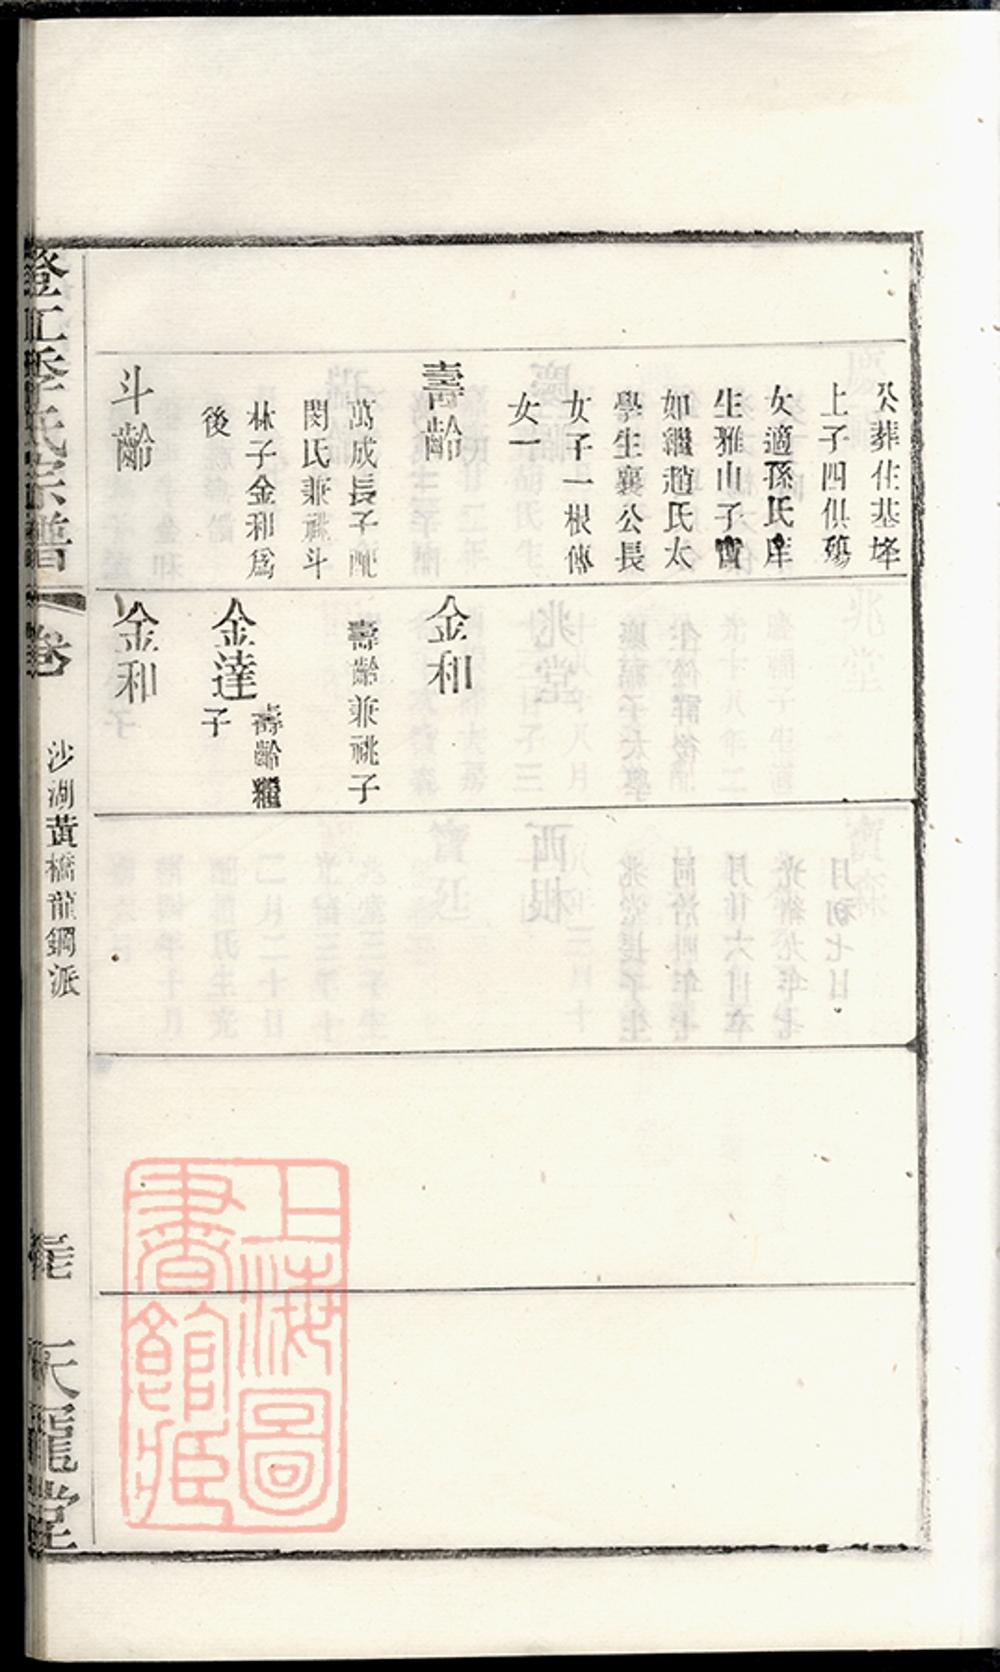 公葬住基垰
上子四俱殤
女適孫氏庠
生雅山子實
如繼趙氏太
學生襄公長
女子一根傳
女一
壽齡
萬成長子配
閔氏兼祧斗
林子金和爲
後
斗齡
金和
壽齡兼祧子
金達
壽齡繼
子
金和
澄江季氏宗譜
卷
沙湖黃橋龍鋼派
天龍堂
上海圖
書館藏